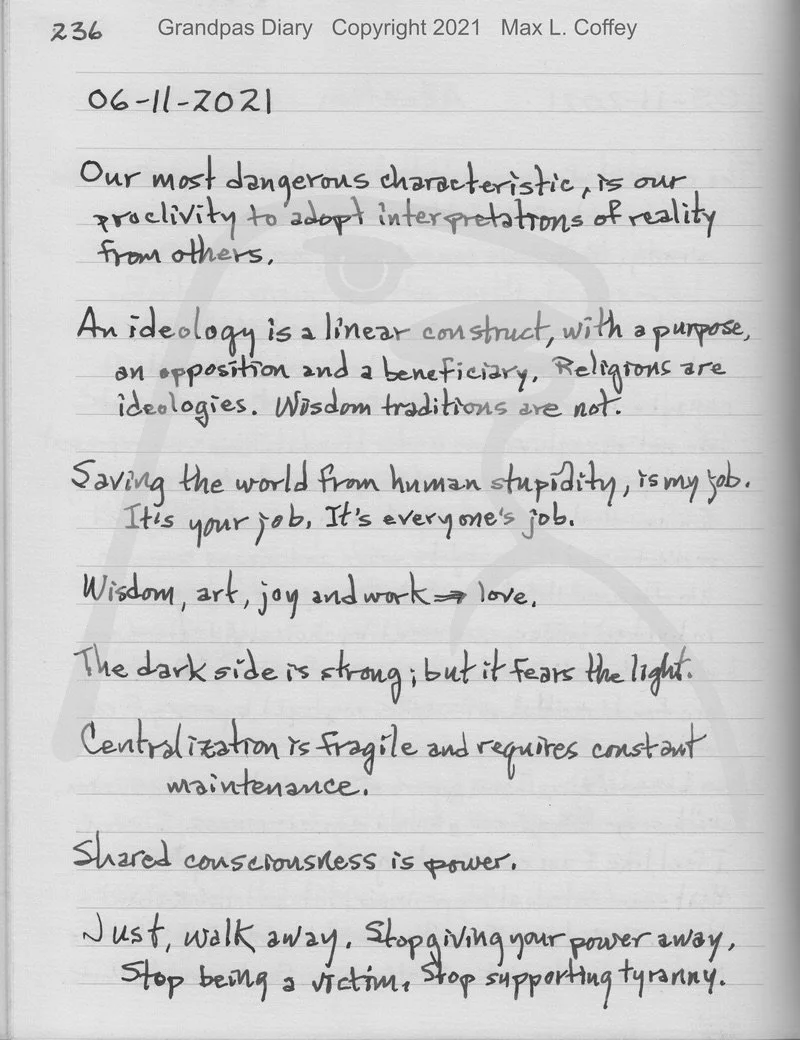 236 Grandpas Diary Copyright 2021 Max L. Coffey
06-11-2021
Our most dangerous characteristic, is our
proclivity to adopt interpretations of reality
from others.
An ideology is a linear construct, with a purpose,
an opposition and a beneficiary. Religions are
ideologies. Wisdom traditions are not.
Saving the world from human stupidity, is my job.
It's your job. It's everyone's job.
Wisdom, art, joy and work ⇒ love.
The dark side is strong; but it fears the light.
Centralization is fragile and requires constant
maintenance.
Shared consciousness is power.
Just, walk away. Stop giving your power away.
Stop being a victim. Stop supporting tyranny.